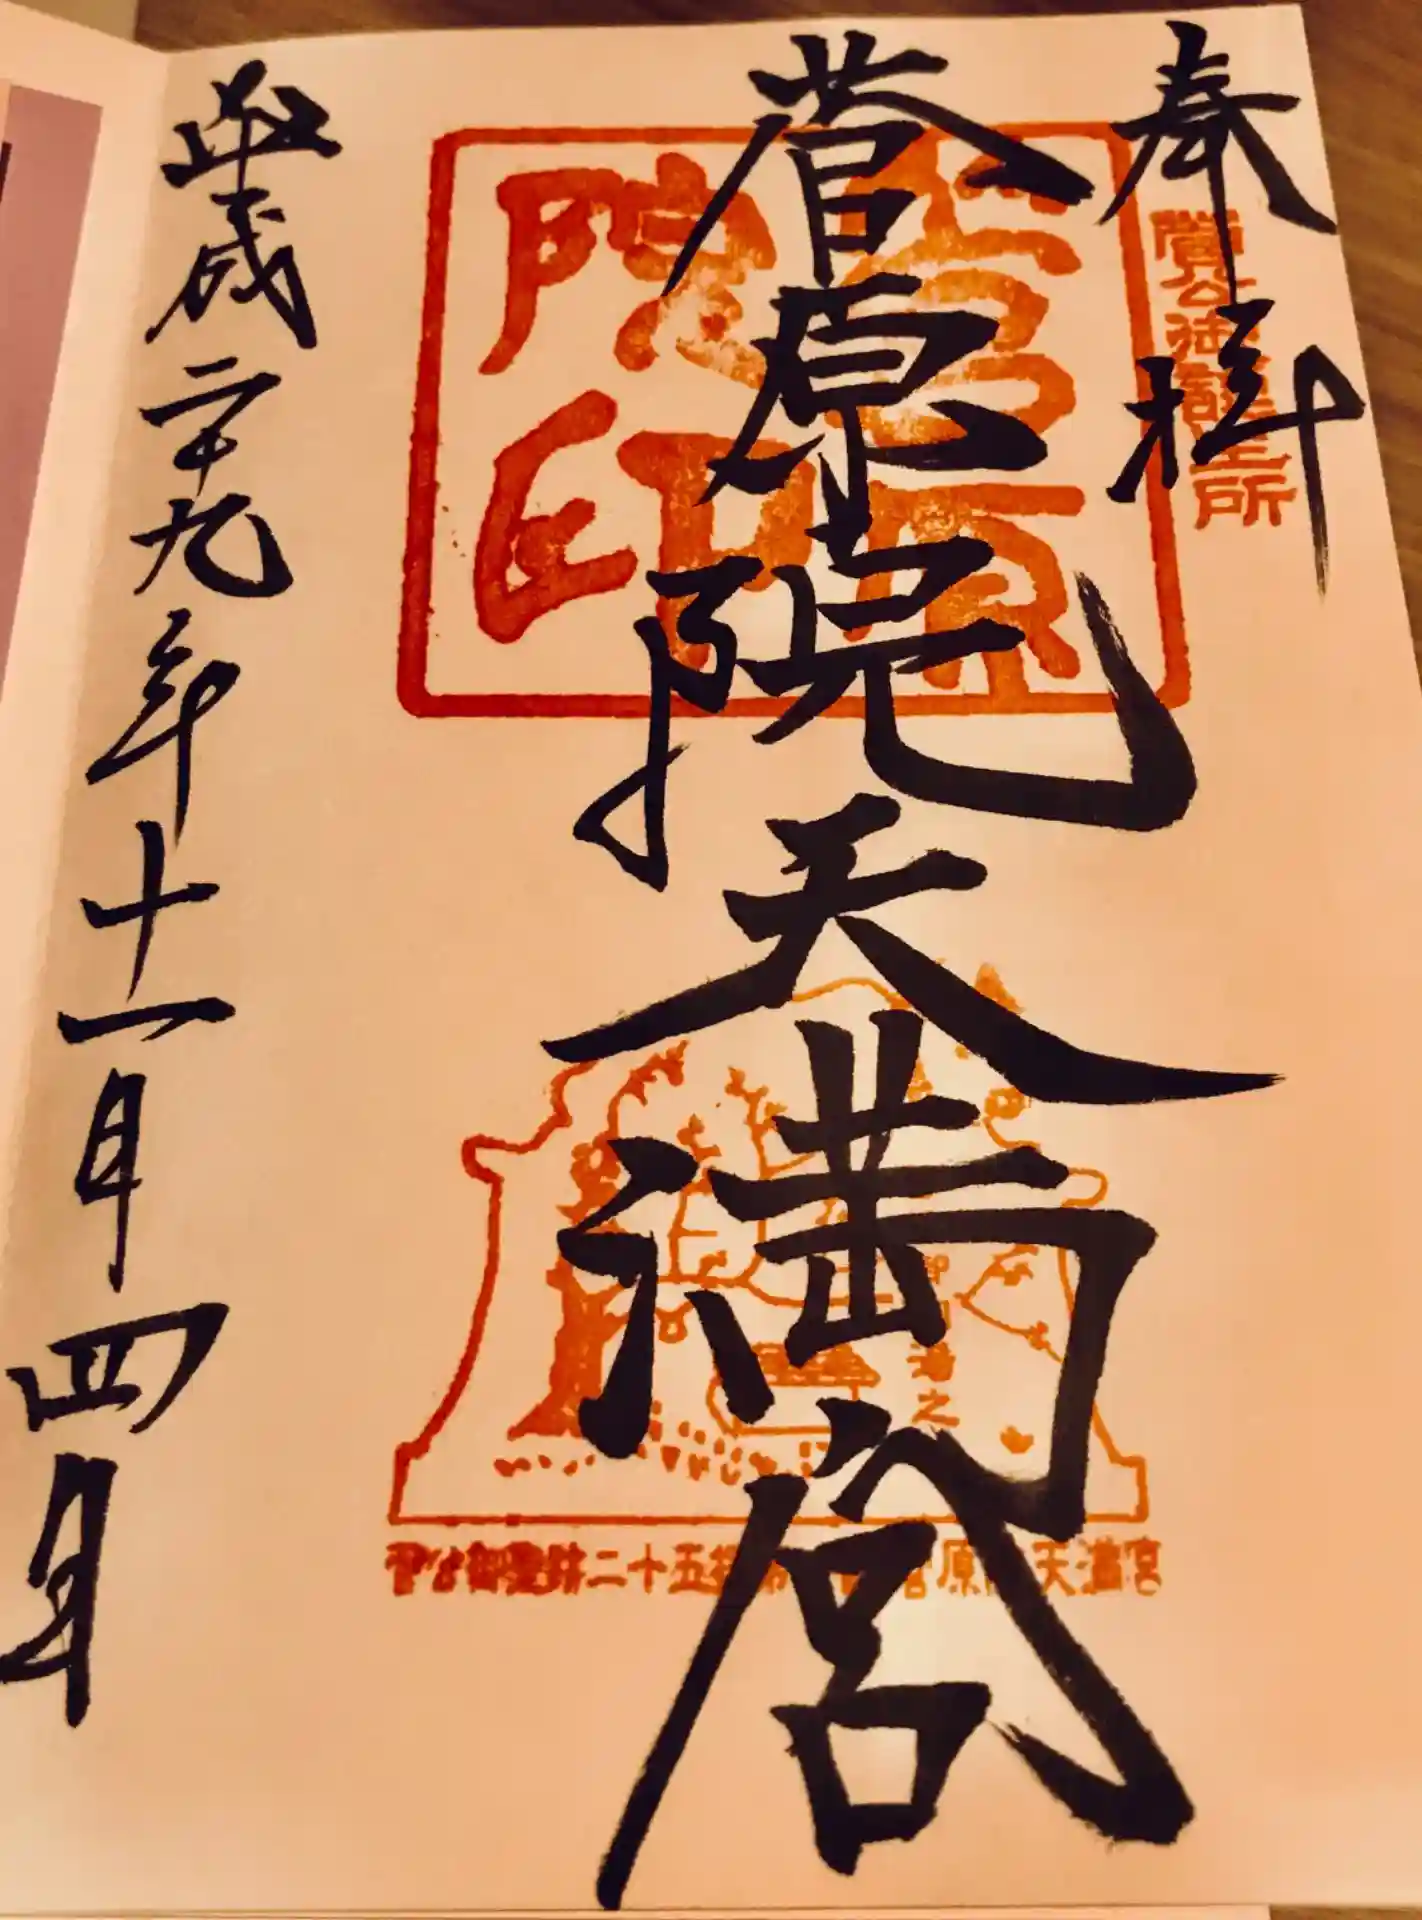 奉拝
菅公御誕生所
菅原院天満宮
菅原院印
平成二十九年十一月四日
湯之
菅公御聖跡二十五拝
原
天満宮